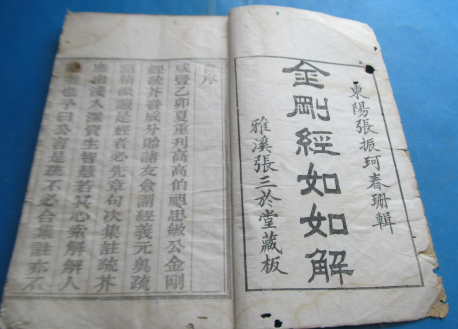 東陽張振珂春珊輯
金剛經如如解
雅溪張三於堂藏板
序
咸豐乙卯夏重刊高高伯祖思敏公金剛
經疏芥書成分貽諸友僉謂經義元奧疏
是經者必先章句次集註疏芥
由淺入深資生智慧若冥心索解解人
也予曰公言是疏不必合集註亦不